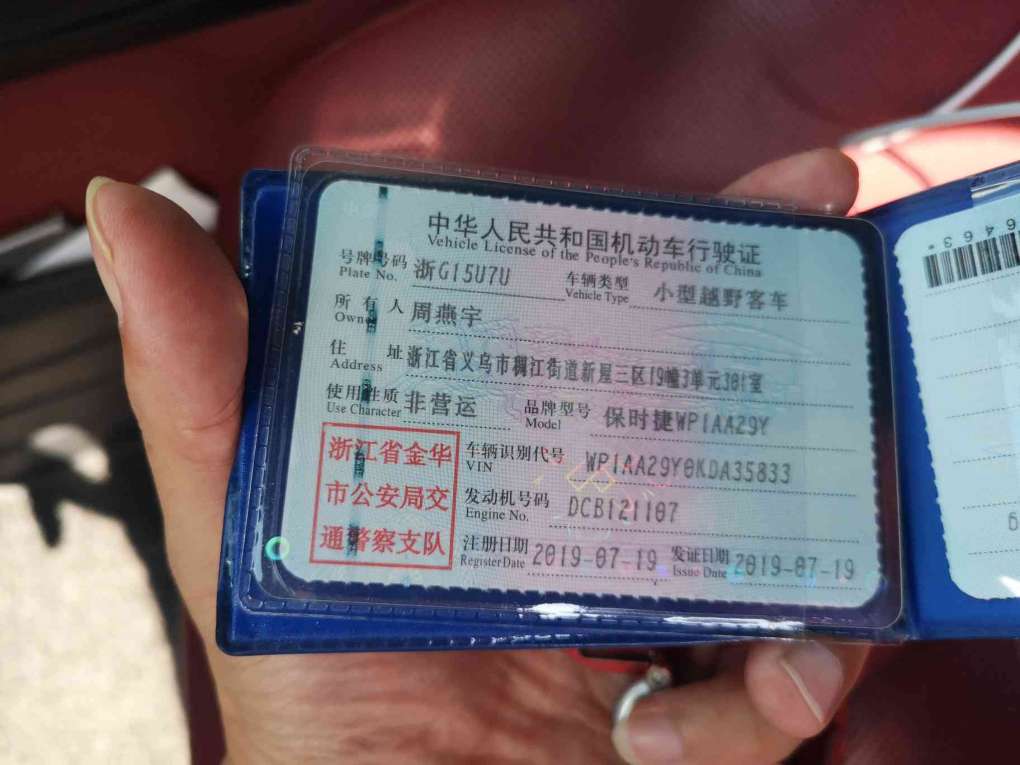 中华人民共和国机动车行驶证
Vehicle License of the People's Republic of China
号牌号码 浙G15U7U 车辆类型 小型越野客车
Plate No. Vehicle Type
所有人 周燕宇
Owner
住址 浙江省义乌市稠江街道新屋三区19幢3单元301室
Address
使用性质 非营运 品牌型号 保时捷WP1AA29Y
Use Character Model
浙江省金华
市公安局交
通警察支队
车辆识别代号 WP1AA29Y0KDA35833
VIN
发动机号码 DCB121107
Engine No.
注册日期 2019-07-19 发证日期 2019-07-19
Register Date Issue Date
6463*